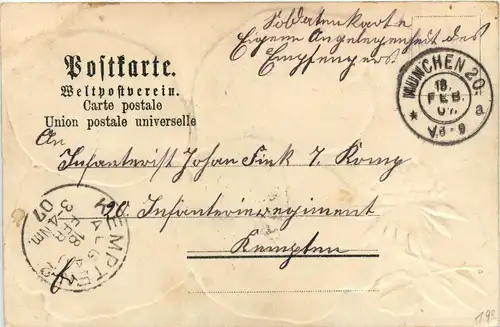 Soldatenkarte
Eigene Angelegenheit des
Empfängers
Postkarte.
Weltpostverein.
Carte postale
Union postale universelle
MÜNCHEN 20.
18.
FEB.
07.
V.8-9
a
An
Infanterist Johan Fink 7. Komp
20. Infanterieregiment
Kempten
KEMPTEN
18 FEB
3-4 NM.
07